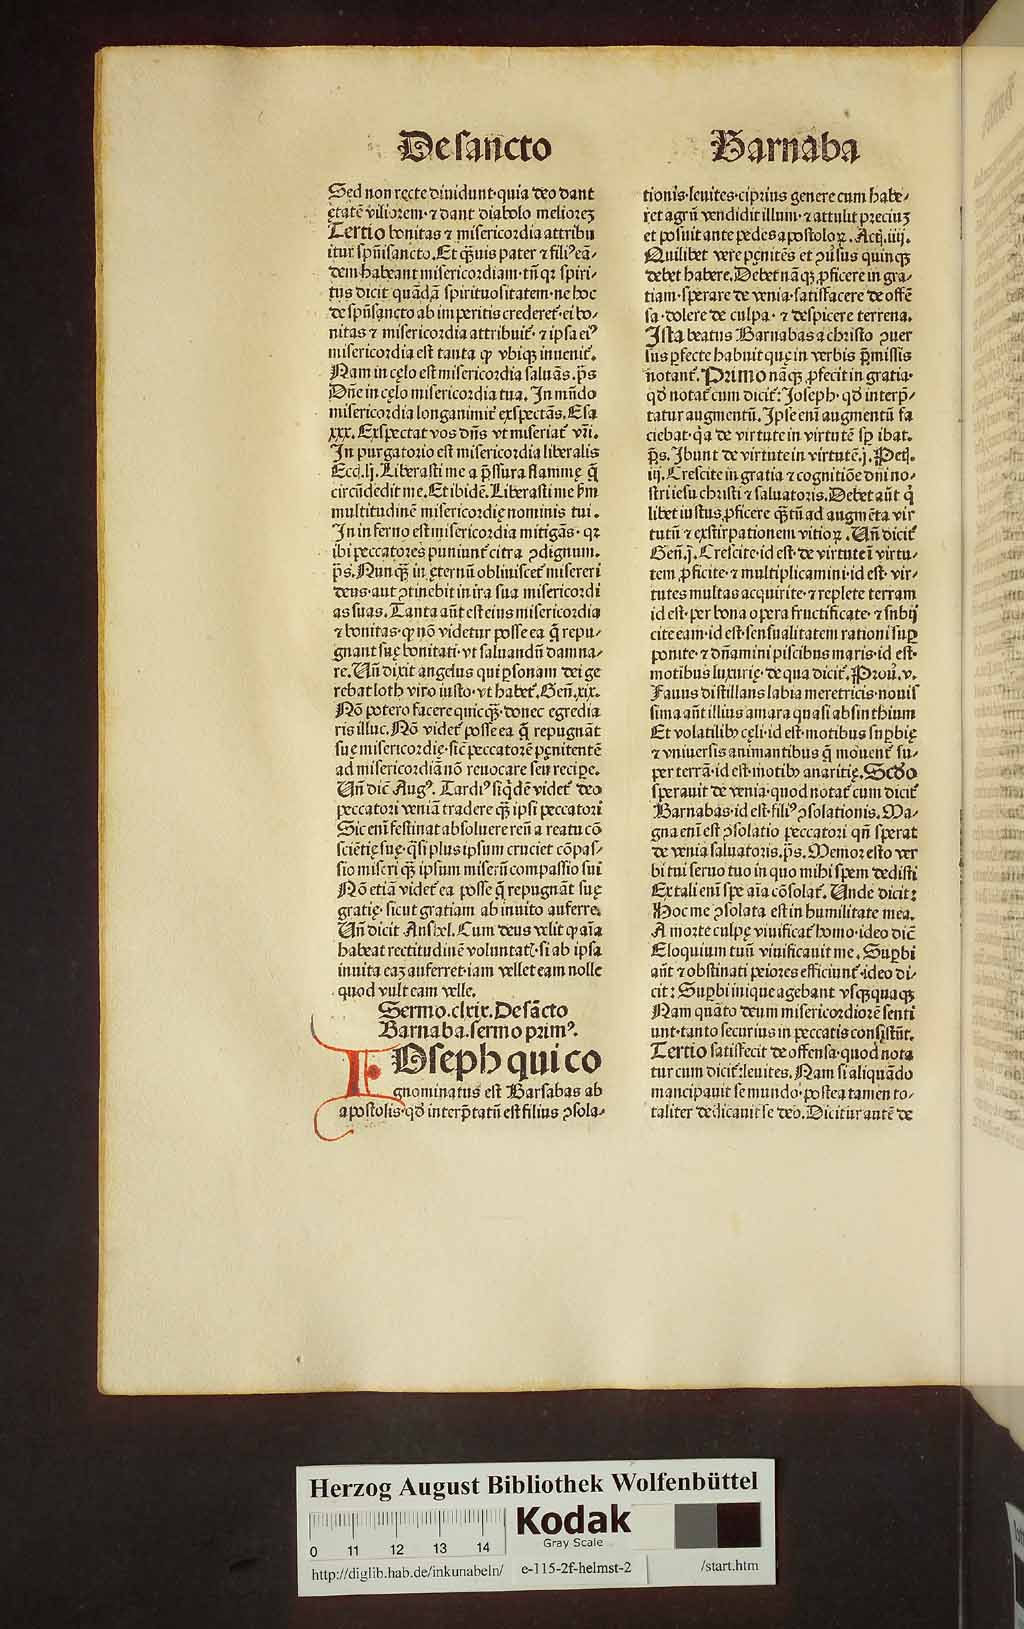 De sancto
Sed non recte diuidunt·quia deo dant
ętatē viliorem·⁊ dant diabolo meliorēꝫ
Tertio bonitas ⁊ misericordia attribu
itur spūisancto. Et quāuis pater ⁊ filiꝰ eā-
dem habeant misericordiam·tn̄ qꝛ spiri-
tus dicit quādā spirituositatem·ne hoc
de spūsancto ab imperitis crederet᷑·ei bo-
nitas ⁊ misericordia attribuit᷑·⁊ ipsa eiꝰ
misericordia est tanta ꝙ vbiqꝫ inuenit᷑.
Nam in cęlo est misericordia saluās.p̄s
Dn̄e in cęlo misericordia tua. In mūdo
misericordia longanimit᷑ exspectās. Esa
xxx. Exspectat vos dn̄s vt miseriat᷑ vr̄i.
In purgatorio est misericordia liberalis
Eccl.lj. Liberasti me a p̄ssura flammę q̄
circūdedit me. Et ibidē. Liberasti me ẜm
multitudinē misericordię nominis tui.
In inferno est misericordia mitigās·qꝛ
ibi peccatores puniunt᷑ citra ꝯdignum.
p̄s. Nunqꝫ in ęternū obliuiscet᷑ misereri
deus·aut ꝯtinebit in ira sua misericordi
as suas. Tanta aūt est eius misericordia
⁊ bonitas·ꝙ nō videtur posse ea q̄ repu-
gnant suę bonitati·vt saluandū damna-
re. Un̄ dixit angelus qui ꝑsonam dei ge
rebat loth viro iusto·vt habet᷑. Gen̄.xix.
Nō potero facere quicqꝫ·donec egredia
ris illuc. Nō videt᷑ posse ea q̄ repugnāt
suę misericordię·sic̄ peccatorē pęnitentē
ad misericordiā nō reuocare seu recipe.
Un̄ dic̄ Augꝰ. Tardiꝰ siqͥdē videt᷑ deo
peccatori veniā tradere qꝫ ipsi peccatori
Sic em̄ festinat absoluere reū a reatu cō
sciētię suę·qͣsi plus ipsum cruciet cōpas-
sio miseri qꝫ ipsum miserū compassio sui
Nō etiā videt᷑ ea posse q̄ repugnāt suę
gratię·sicut gratiam ab inuito auferre.
Un̄ dicit Anshel. Cum deus velit ꝙ aīa
habeat rectitudinē voluntat᷑·si ab ipsa
inuita eaꝫ auferret·iam vellet eam nolle
quod vult eam velle.
Sermo.clxix. De sācto
Barnaba.sermo primꝰ.
IOseph qui co
gnominatus est Barsabas ab
apostolis·qd̓ interp̄tatū est filius ꝯsola-
Barnaba
tionis·leuites·ciprius genere cum habe-
ret agrū vendidit illum·⁊ attulit preciuꝫ
et posuit ante pedes apostoloꝝ. Actꝭ.iiij.
Quilibet vere pęnitēs et ꝯuͥsus quinqꝫ
debet habere. Debet nāqꝫ ꝓficere in gra-
tiam·sperare de venia·satisfacere de offē
sa·dolere de culpa·⁊ despicere terrena.
Ista beatus Barnabas a christo ꝯuer
sus ꝑfecte habuit quę in verbis p̄missis
notant᷑. Primo nāqꝫ ꝓfecit in gratia·
qd̓ notat᷑ cum dicit᷑: Joseph·qd̓ interp̄-
tatur augmentū. Ipse em̄ augmentū fa
ciebat·qͥa de virtute in virtutē sꝑ ibat.
p̄s. Ibunt de virtute in virtutē.j. Petꝭ.
iij. Crescite in gratia ⁊ cognitiōe dn̄i no-
stri iesu christi ⁊ saluatoris. Debet aūt qͥ
libet iustus ꝓficere qꝫtū ad augmēta vir
tutū ⁊ exstirpationem vitioꝝ. Un̄ dicit᷑
Gen̄.j. Crescite·id est·de virtute ī virtu-
tem ꝓficite·⁊ multiplicamini·id est·vir-
tutes multas acquirite·⁊ replete terram
id est·per bona opera fructificate·⁊ subij
cite eam·id est·sensualitatem rationi suꝑ
ponite·⁊ dn̄amini piscibus maris·id est·
motibus luxurię·de qua dicit᷑. Prou̓.v.
Fauus distillans labia meretricis·nouis
sima aūt illius amara quasi absinthium
Et volatilibꝰ cęli·id est·motibus suꝑbię
⁊ vniuersis animantibus q̄ mouent᷑ su-
per terrā·id est·motibꝰ auaritię. Scd̓o
sperauit de venia·quod notat᷑ cum dicit᷑
Barnabas·id est·filiꝰ ꝯsolationis. Ma-
gna em̄ est ꝯsolatio peccatori qn̄ sperat
de venia saluatoris.p̄s. Memor esto ver
bi tui seruo tuo in quo mihi spem dedisti
Ex tali em̄ spe aīa cōsolat᷑. Unde dicit:
Hoc me ꝯsolata est in humilitate mea.
A morte culpę viuificat᷑ homo·ideo dic̄
Eloquium tuū viuificauit me. Suꝑbi
aūt ⁊ obstinati peiores efficiunt᷑·ideo di-
cit: Suꝑbi inique agebant vsqꝫquaqꝫ
Nam quāto deum misericordiorē senti
unt·tanto securius in peccatis consistūt.
Tertio satisfecit de offensa·quod nota
tur cum dicit᷑: leuites. Nam si aliquādo
mancipauit se mundo·postea tamen to-
taliter dedicauit se deo. Dicitur autē de
Herzog August Bibliothek Wolfenbüttel
0 11 12 13 14
Kodak
Gray Scale
http://diglib.hab.de/inkunabeln/ e-115-2f-helmst-2 /start.htm